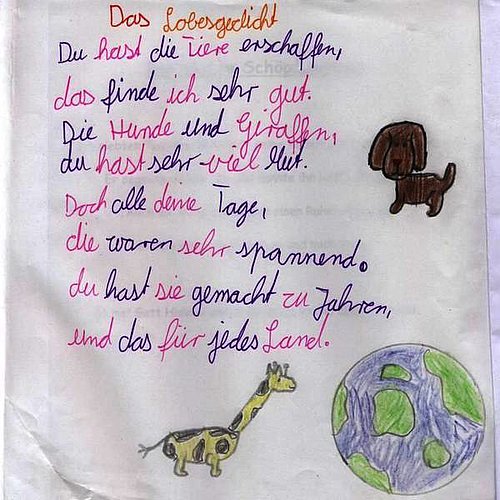 Das Lobesgedicht
Du hast die Tiere erschaffen,
das finde ich sehr gut.
Die Hunde und Giraffen,
du hast sehr viel Mut.
Doch alle deine Tage,
die waren sehr spannend.
du hast sie gemacht zu Jahren,
und das für jedes Land.